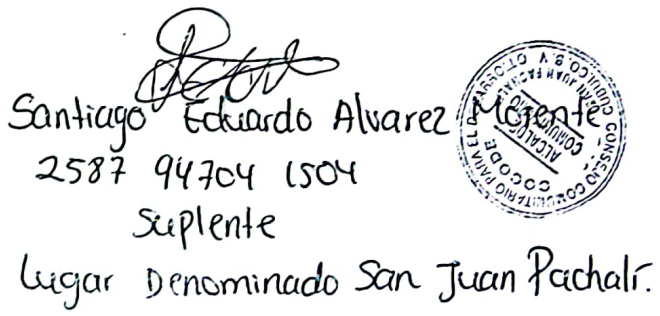 Santiago Eduardo Alvarez Morente
2587 94704 1504
Suplente
Lugar Denominado San Juan Pachalí.
CONSEJO COMUNITARIO PARA EL DESARROLLO
CUBULCO, B. V.
SAN JUAN PACHALÍ
ALCALDE
COMUNITARIO
COCODE